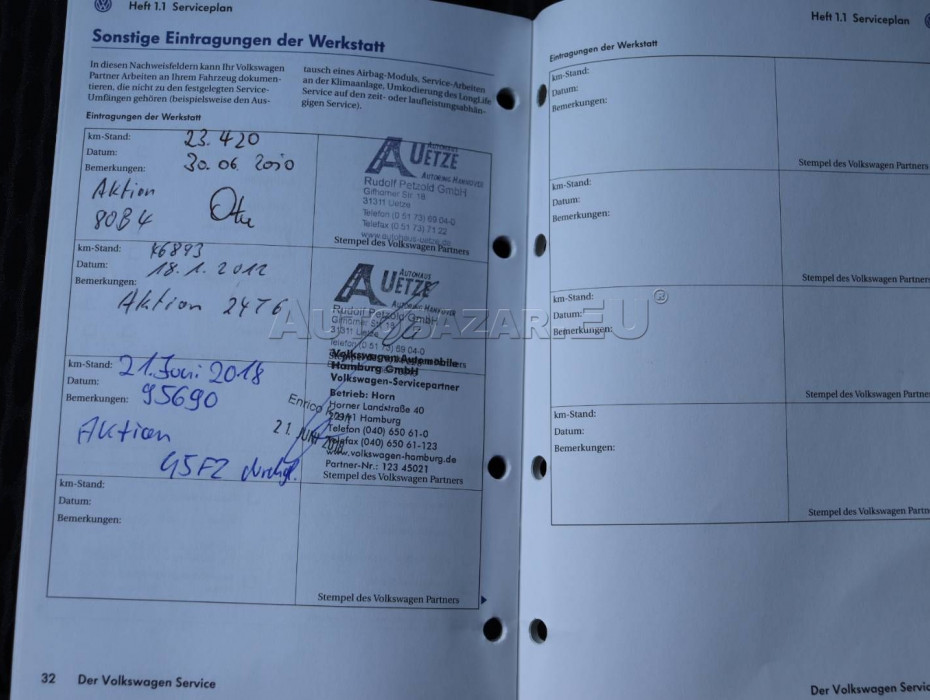 Heft 1.1 Serviceplan
Sonstige Eintragungen der Werkstatt
In diesen Nachweisfeldern kann Ihr Volkswagen
Partner Arbeiten an Ihrem Fahrzeug dokumen-
tieren, die nicht zu den festgelegten Service-
Umfängen gehören (beispielsweise den Aus-
tausch eines Airbag-Moduls, Service-Arbeiten
an der Klimaanlage, Umkodierung des LongLife
Service auf den zeit- oder laufleistungsabhän-
gigen Service).
Eintragungen der Werkstatt
km-Stand: 23.420
Datum: 30.06.2010
Bemerkungen:
Aktion
80B4
AUTOHAUS
UETZE
AUTORING HANNOVER
Rudolf Petzold GmbH
Gifhorner Str. 18
31311 Uetze
Telefon (0 51 73) 69 04-0
Telefax (0 51 73) 71 22
www.autohaus-uetze.de
Stempel des Volkswagen Partners
km-Stand: 46893
Datum: 18.1.2012
Bemerkungen:
Aktion 24T6
AUTOHAUS
UETZE
AUTORING HANNOVER
Rudolf Petzold GmbH
Gifhorner Str.
31311 Uetze
Telefon (0 51 73) 69 04-0
km-Stand: 21. Juni 2018
Datum: 95690
Bemerkungen:
Aktion
45F2 durchgf.
Volkswagen Automobile
Hamburg GmbH
Volkswagen-Servicepartner
Betrieb: Horn
Horner Landstraße 40
22111 Hamburg
Telefon (040) 650 61-0
Telefax (040) 650 61-123
www.volkswagen-hamburg.de
Partner-Nr.: 123 45021
Enrico
21. JUNI 2018
Stempel des Volkswagen Partners
km-Stand:
Datum:
Bemerkungen:
Stempel des Volkswagen Partners
32 Der Volkswagen Service
Heft 1.1 Serviceplan
Eintragungen der Werkstatt
km-Stand:
Datum:
Bemerkungen:
Stempel des Volkswagen Partners
km-Stand:
Datum:
Bemerkungen:
Stempel des Volkswagen Partners
km-Stand:
Datum:
Bemerkungen:
Stempel des Volkswagen Partner
km-Stand:
Datum:
Bemerkungen:
Stempel des Volkswagen Partn
Der Volkswagen Servic
AUTOBAZAR.EU®